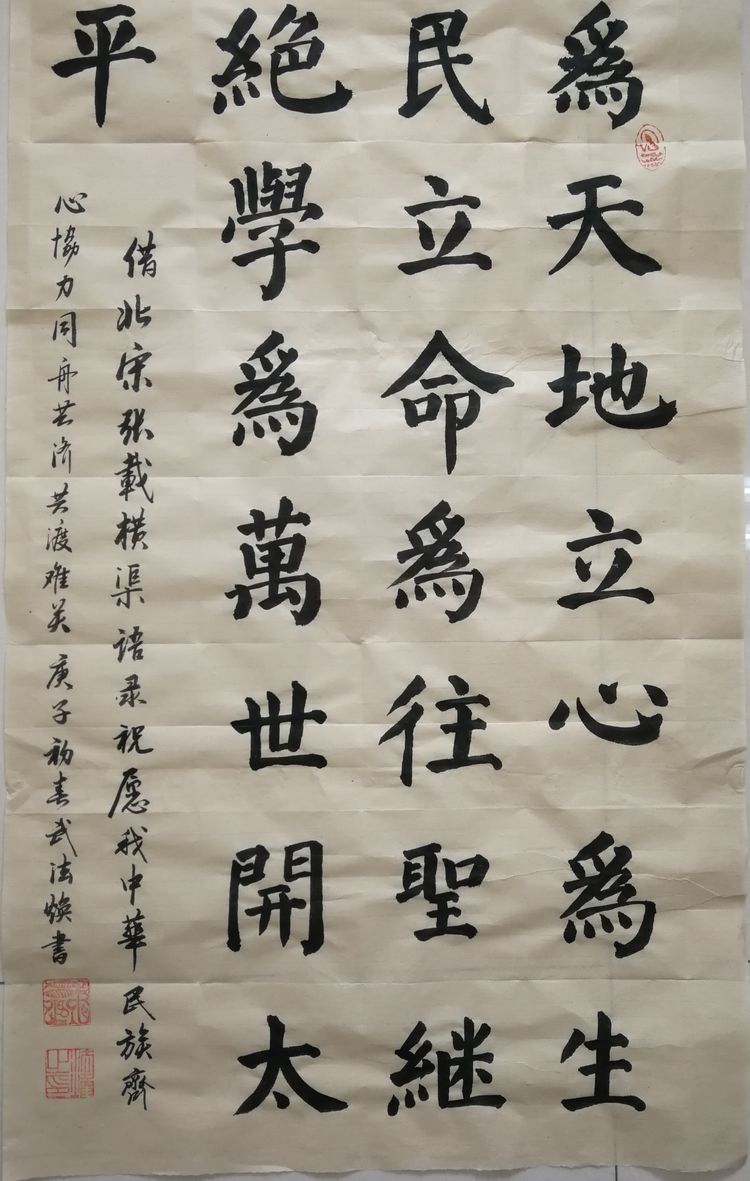 爲天地立心爲生
民立命爲往聖継
絶學爲萬世開太
平
借北宋张載横渠语录祝愿我中華民族齊
心協力同舟共济共渡难关庚子初春武法焕書